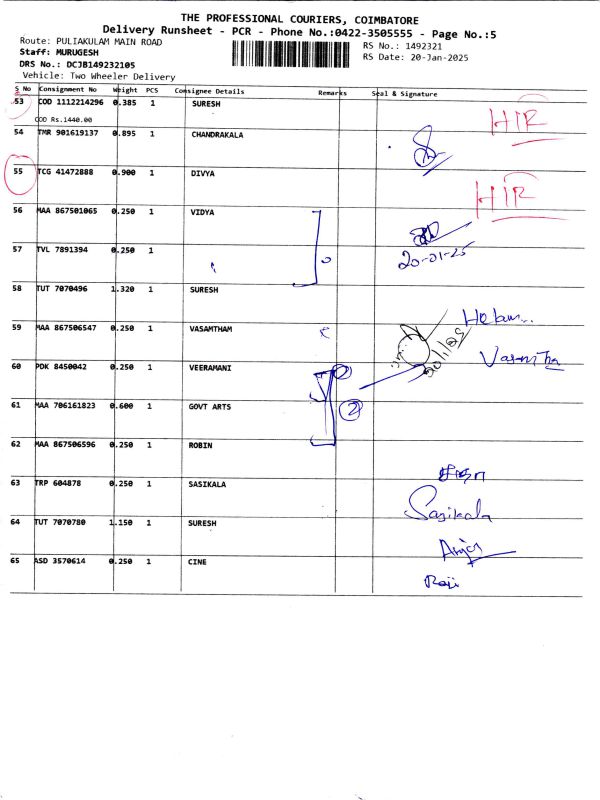 THE PROFESSIONAL COURIERS, COIMBATORE
Delivery Runsheet - PCR - Phone No.:0422-3505555 - Page No.:5
Route: PULIAKULAM MAIN ROAD RS No.: 1492321
Staff: MURUGESH RS Date: 20-Jan-2025
DRS No.: DCJB149232105
Vehicle: Two Wheeler Delivery
S No Consignment No Weight PCS Consignee Details Remarks Seal & Signature
53 COD 1112214296 0.385 1 SURESH HIR
COD Rs.1440.00
54 TMR 901619137 0.895 1 CHANDRAKALA
55 TCG 41472888 0.900 1 DIVYA HIR
56 MAA 867501065 1 0.250 1 VIDYA
57 TVL 7891394 0.250 1 20-01-25
58 TUT 7070496 1.320 1 SURESH
59 MAA 867506547 0.250 1 VASAMTHAM 20/1/25 Vasantha
60 PDK 8450042 0.250 1 VEERAMANI
61 MAA 706161823 0.600 1 GOVT ARTS 2
62 MAA 867506596 0.250 1 ROBIN
63 TRP 604878 0.250 1 SASIKALA Sasikala
64 TUT 7070780 1.150 1 SURESH
65 ASD 3570614 0.250 1 CINE Raji